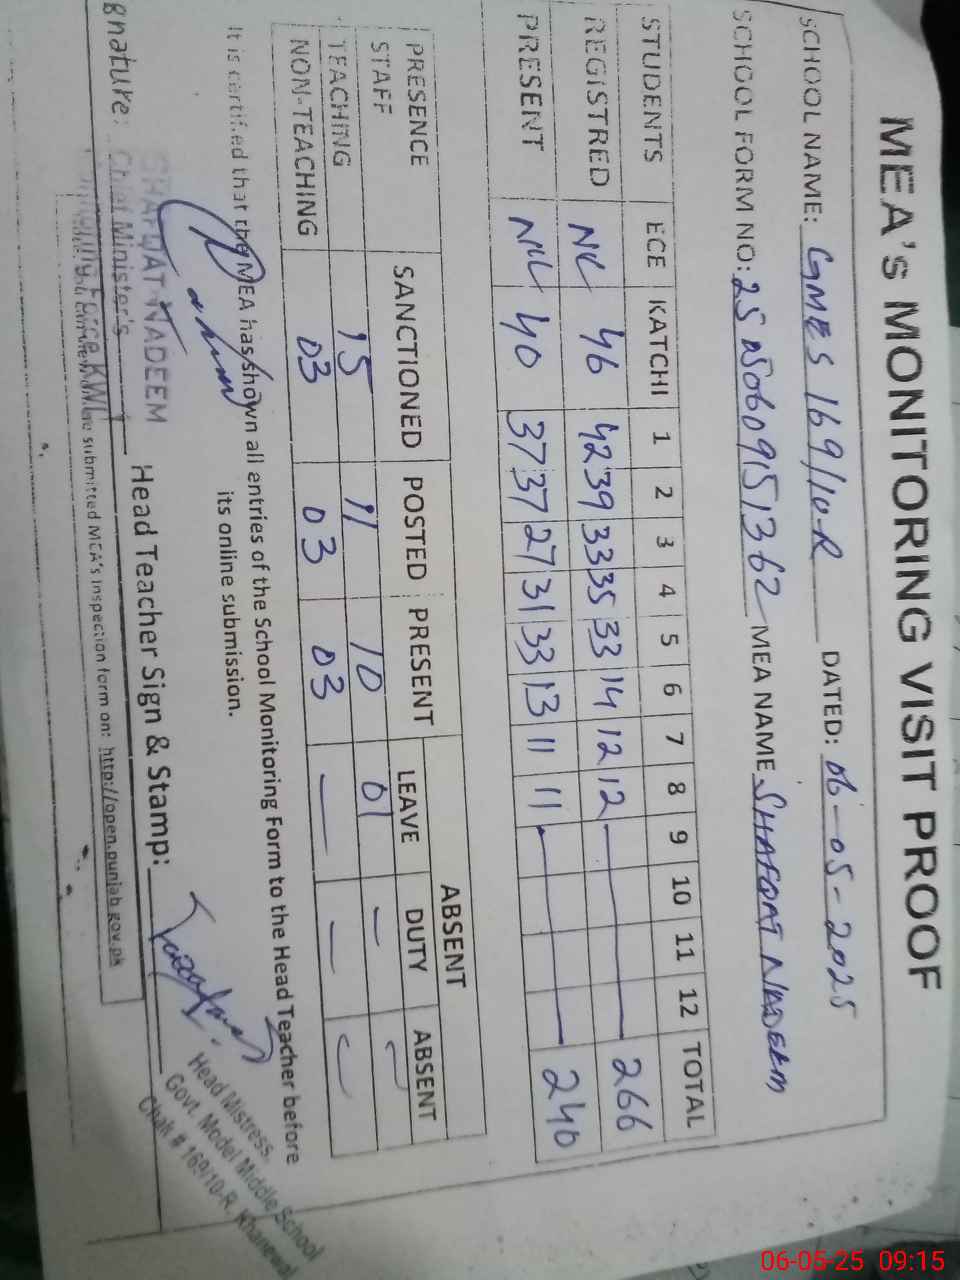 MEA's MONITORING VISIT PROOF
SCHOOL NAME: GMES 169/10-R DATED: 06-05-2025
SCHOOL FORM NO: MEA NAME SHAFQAT NADEEM
STUDENTS ECE KATCHI 1 2 3 4 5 6 7 8 9 10 11 12 TOTAL
REGISTRED NIL 46 42 39 33 35 33 14 12 12 — 266
PRESENT NIL 40 37 37 27 31 33 13 11 11 — 240
PRESENCE SANCTIONED POSTED PRESENT ABSENT
STAFF LEAVE DUTY ABSENT
TEACHING 15 11 10 01 —
NON-TEACHING 03 03 03 — —
It is certified that the MEA has shown all entries of the School Monitoring Form to the Head Teacher before
its online submission.
SHAFQAT NADEEM
gnature: Chief Minister's Head Teacher Sign & Stamp:
Head Mistress,
Govt. Model Middle School
Chak # 169/10-R, Khanewal
submitted MEA's Inspection form on: http://open.punjab.gov.pk
06-05-25 09:15